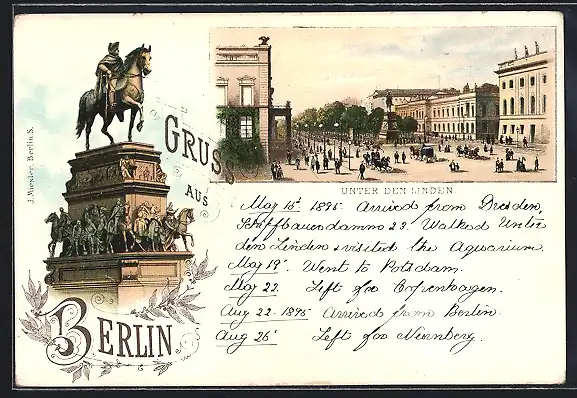 J. Miesler, Berlin S.
GRUSS
AUS
BERLIN
UNTER DEN LINDEN
May 15' 1895 Arrived from Dresden,
Schiffbauerdamm 23. Walked Unter
den Linden & visited the Aquarium.
May 19' Went to Potsdam.
May 22. Left for Copenhagen.
Aug 22. 1895 Arrived from Berlin
Aug 26' Left for Nürnberg.